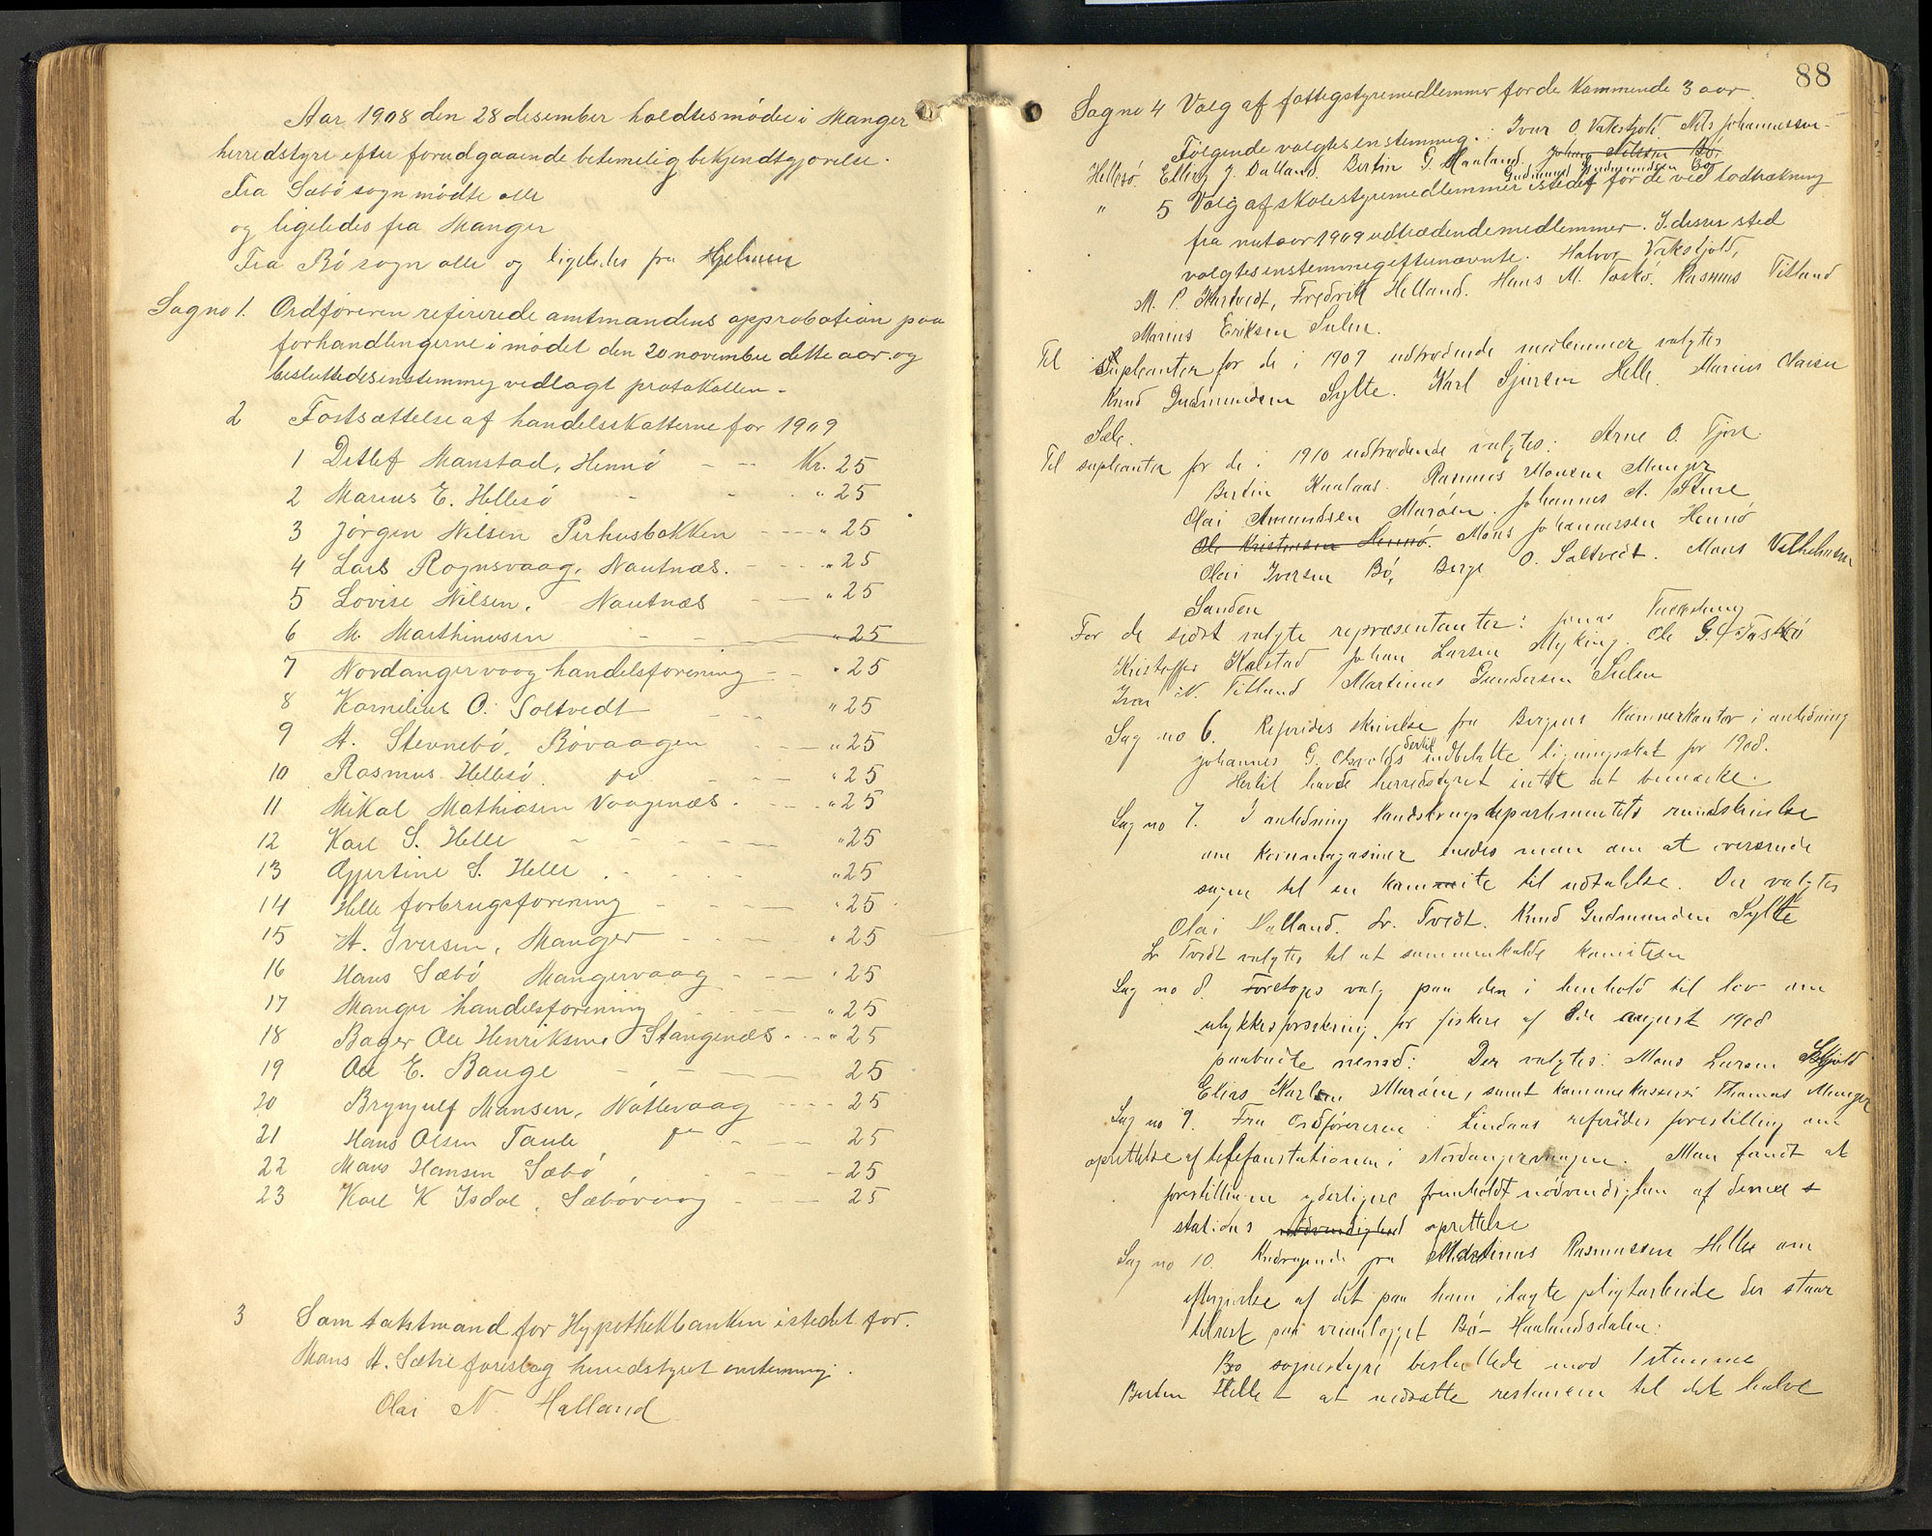 Aar 1908 den 28 desember holdtes møde i Manger
herredstyre efter forudgaaende betimelig bekjendtgjørelse.
Fra Sæbø sogn mødte alle
og ligeledes fra Manger
Fra Bø sogn alle og ligeledes fra Hjelmen
Sag no 1. Ordføreren refererede amtmandens approbation paa
forhandlingerne i mødet den 20 november dette aar og
besluttedes enstemmig vedlagt protokollen -
2 Fastsættelse af handelsskatterne for 1909
1 Detlef Manstad, Hennø - - Kr. 25
2 Marius E. Hellesø - - " 25
3 Jørgen Nilsen Pirhusbakken - - - " 25
4 Lars Rognsvaag, Nautnæs. - - - " 25
5 Lovise Nilsen, Nautnæs - - " 25
6 M. Marthinusen - - - " 25
7 Nordangervaag handelsforening - - " 25
8 Kornelius O. Soltvedt - - " 25
9 A. Stevnebø, Bøvaagen - - - " 25
10 Rasmus Hellesø - - - " 25
11 Mikal Mathiasen Vaagenæs. - - - " 25
12 Karl S. Helle - - - - " 25
13 Gjertine S. Helle . - - - " 25
14 Helle forbrugsforening - - - " 25
15 A. Iversen, Manger - - - " 25
16 Hans Sæbø Mangervaag - - - " 25
17 Manger handelsforening - - - " 25
18 Bager Ole Henriksen Stangenæs - - - " 25
19 Ole E. Bauge - - - 25
20 Brynjulf Mansen, Nøttevaag - - - 25
21 Hans Olsen Taule - - - 25
22 Mans Hansen Sæbø - - 25
23 Karl K Isdal, Sæbøvaag - - - 25
3 Som takstmand for Hypothekbanken istedet for
Mons A. Sætre foreslog herredstyret enstemmig.
Olai N. Halland
88
Sag no 4 Valg af fattigstyremedlemmer for de kommende 3 aar
Følgende valgtes enstemmig: Ivar O. Vatshjold Nils Johannessen
Hellesø. Elling J. Dalland. Bertin G. Haaland. Johan Nilsen Bø,
Gudmund Gudmundsen Bø
" 5 Valg af skolestyremedlemmer istedet for de ved lodtrækning
fra nutaar 1909 udtrædende medlemmer. I deres sted
valgtes enstemmig eftenævnte. Halvor Vatshjold,
M. P. Kartvedt, Fredrik Helland. Hans M. Toskø. Rasmus Titland
Marius Eriksen Sulen.
Til supleanter for de i 1909 udtrædende medlemmer valgtes
Knud Gudmundsen Sylte. Karl Sjursen Helle. Marius Olasen
Sæle.
Til supleanter for de i 1910 udtrædende valgtes: Arne O. Fjore
Bertin Kaalaas. Rasmus Monsen Manger
Olai Amundsen Marøen. Johannes A. Sture
Ole Kristensen Hennø. Mons Johannessen Hennø
Olai Iversen Bø, Berge O. Soltvedt. Mons Vilhelmsen
Sanden
For de sidst valgte repræsentanter: Jonas
Kristoffer Kalstad Johan Larsen Myking. Ole G. Toskø
Ivar N. Titland Martinus Gundersen Sulen
Sag no 6. Referedes skrivelse fra Bergens Kæmnerkontor i anledning
dertil
Johannes G. Olsvolds indbetalte ligningsskat for 1908.
Hertil havde herredstyret intet at bemærke.
Sag no 7. I anledning Landbrugsdepartementets rundskrivelse
om kornmagasiner enedes man om at oversende
sagen til en komite til udtalelse. Der valgtes
Olai Dalland. Lr. Tvedt. Knud Gudmundsen Sylte
Lr Tvedt valgtes til at sammenkalde komiteen
Sag no 8. Foretoges valg paa den i henhold til lov om
ulykkesforsikring for fiskere af 8de august 1908
paabudte nemnd: Der valgtes: Mons Larsen Skjold
Elias Karlsen Marøen, samt kommunekasserer Thomas Manger
Sag no 9. Fra ordføreren i Lindaas referedes forestilling om
oprettelse af telefonstationen i Nordangervaagen. Man fandt at
forestillingen yderligere fremholdt nødvendigheden af denne
stations nødvendighed oprettelse
Sag no 10. Andragende fra Martinus Rasmussen Helle om
eftergivelse af det paa ham ilagte pligtarbeide der staar
tilrest paa veianlægget Bø - Haalandsdalen.
Bø sognestyre besluttede mod 1 stemme
Bertin Helle - at nedsætte restancen til det halve